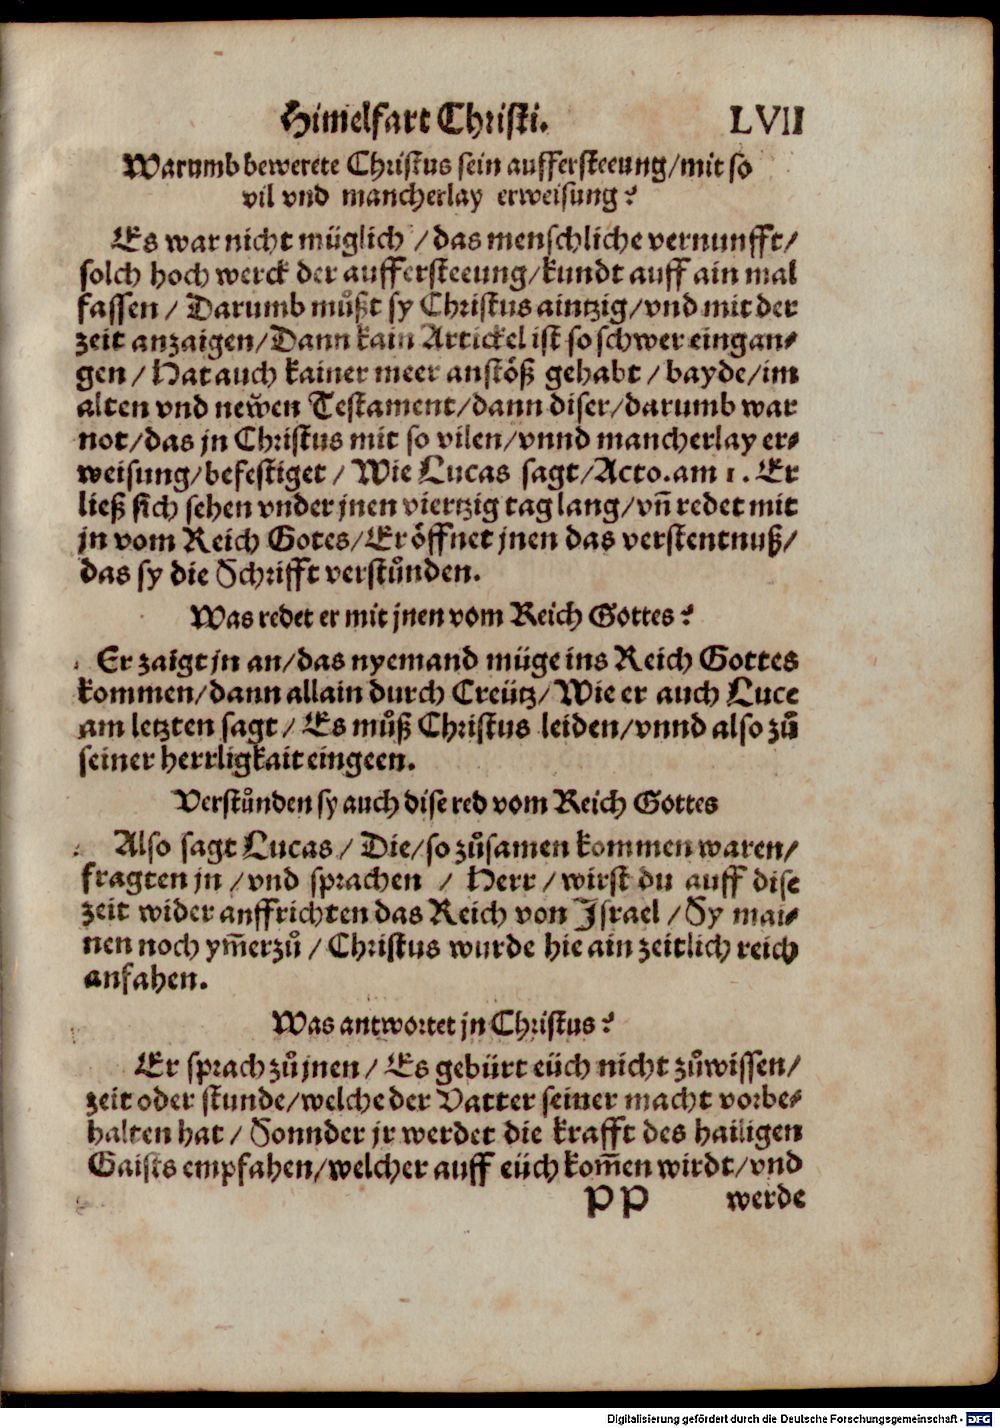 Himelfart Christi. LVII
Warumb bewerete Christus sein aufferſteeung/mit so
vil vnd mancherlay erweisung?
Es war nicht müglich / das menschliche vernunfft/
solch hoch werck der aufferſteeung/kundt auff ain mal
fassen / Darumb můßt sy Christus aintzig/vnd mit der
zeit anzaigen/Dann kain Artickel ist so schwer eingan-
gen / Hat auch kainer meer anstöß gehabt / bayde/im
alten vnd newen Testament/dann diser/darumb war
not/das jn Christus mit so vilen/vnnd mancherlay er-
weisung/befestiget / Wie Lucas sagt/Acto.am 1. Er
ließ sich sehen vnder jnen viertzig tag lang/vñ redet mit
jn vom Reich Gotes/Er öffnet jnen das verstentnuß/
das sy die Schrifft verstůnden.
Was redet er mit jnen vom Reich Gottes?
Er zaigt jn an/das nyemand müge ins Reich Gottes
kommen/dann allain durch Creütz/Wie er auch Luce
am letzten sagt / Es můß Christus leiden/vnnd also zů
seiner herrligkait eingeen.
Verstůnden sy auch dise red vom Reich Gottes
Also sagt Lucas / Die/so zůsamen kommen waren/
fragten jn /vnd sprachen / Herr / wirst du auff dise
zeit wider auffrichten das Reich von Israel / Sy mai-
nen noch ym̃erzů / Christus wurde hie ain zeitlich reich
anfahen.
Was antwortet jn Christus?
Er sprach zů jnen / Es gebürt eüch nicht zůwissen/
zeit oder stunde/welche der Vatter seiner macht vorbe-
halten hat / Sonnder jr werdet die krafft des hailigen
Gaists empfahen/welcher auff eüch kom̃en wirdt/vnd
PP werde
Digitalisierung gefördert durch die Deutsche Forschungsgemeinschaft - DFG